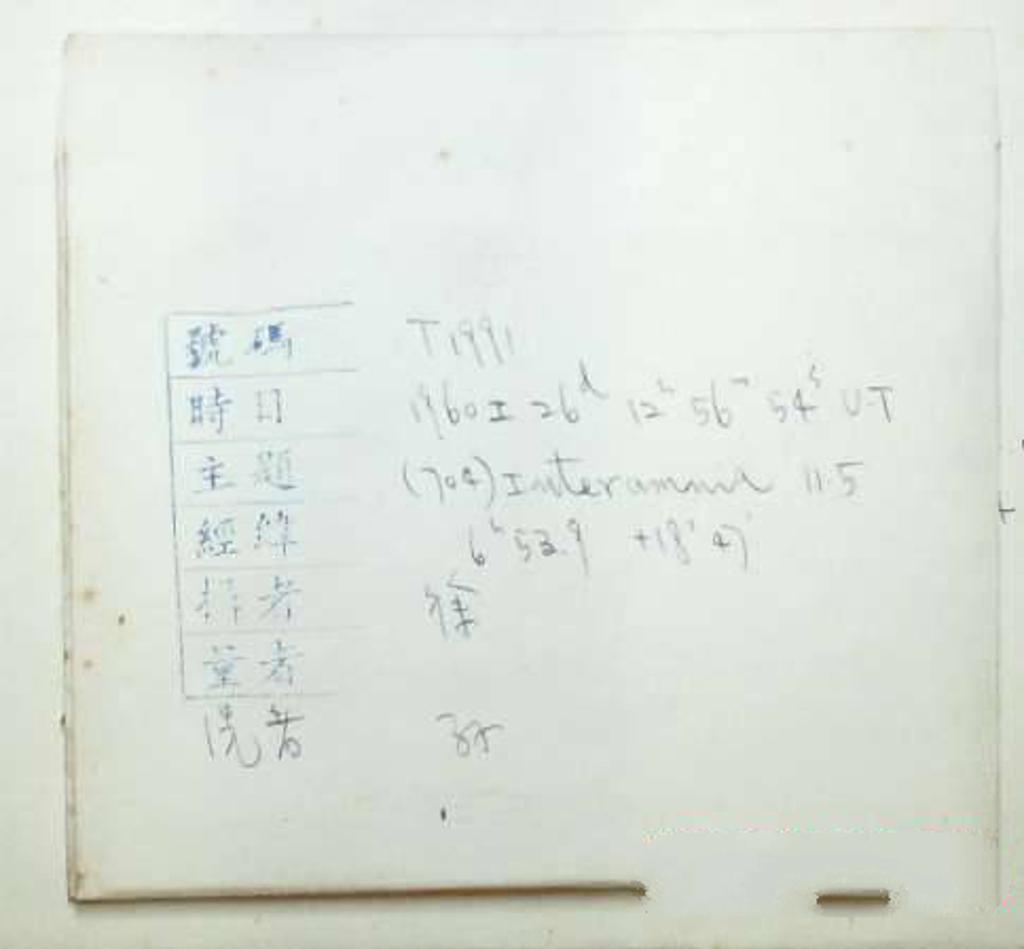 號碼 T1991
時日 1960 I 26d 12h 56m 54s U.T
主題 (704) Interamnia 11.5
經緯 6h 53.9 +18° 47'
拍者 徐
量者
洗者 孙